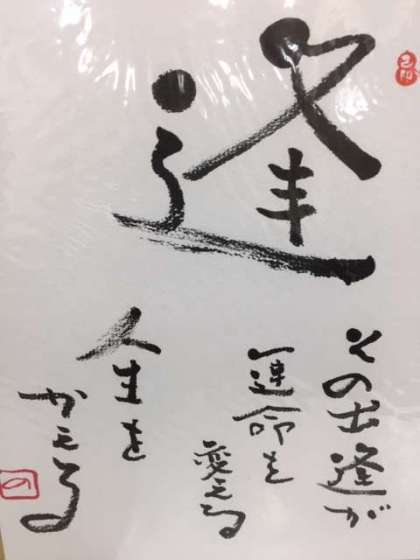 逢
その出逢が
運命を
変える
人生を
かえる
の